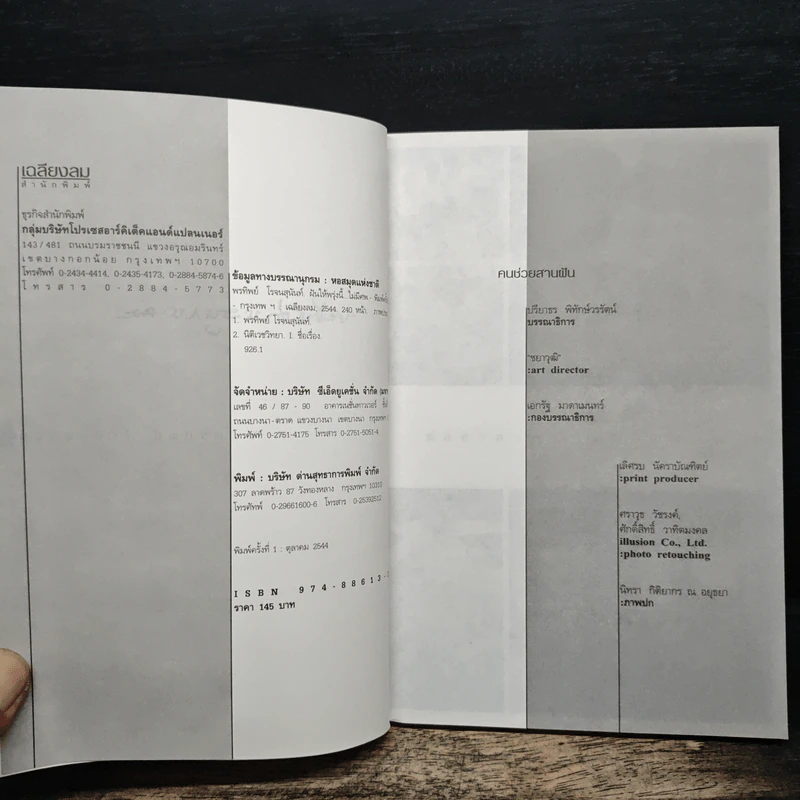 เฉลียงลม
สำนักพิมพ์
ธุรกิจสำนักพิมพ์
กลุ่มบริษัทโปรเซสอาร์คิเต็คแอนด์แปลนเนอร์
143/481 ถนนบรมราชชนนี แขวงอรุณอมรินทร์
เขตบางกอกน้อย กรุงเทพฯ 10700
โทรศัพท์ 0-2434-4414, 0-2435-4173, 0-2884-5874-6
โทรสาร 0-2884-5773
ข้อมูลทางบรรณานุกรม : หอสมุดแห่งชาติ
พรทิพย์ โรจนสุนันท์. ฝันให้พรุ่งนี้...ไม่มีศพ.
- กรุงเทพ ฯ : เฉลียงลม, 2544. 240 หน้า.
1. พรทิพย์ โรจนสุนันท์.
2. นิติเวชวิทยา. I. ชื่อเรื่อง.
926.1
จัดจำหน่าย : บริษัท ซีเอ็ดยูเคชั่น จำกัด
เลขที่ 46 / 87 - 90 อาคารเนชั่นทาวเวอร์
ถนนบางนา-ตราด แขวงบางนา เขตบางนา
โทรศัพท์ 0-2751-4175 โทรสาร 0-2751-5051-4
พิมพ์ : บริษัท ด่านสุทธาการพิมพ์ จำกัด
307 ลาดพร้าว 87 วังทองหลาง กรุงเทพฯ 10310
โทรศัพท์ 0-29661600-6 โทรสาร 0-25392512
พิมพ์ครั้งที่ 1 : ตุลาคม 2544
ISBN 974-88613-
ราคา 145 บาท
คนช่วยสานฝัน
ปรียาธร พิทักษ์วรรัตน์
:บรรณาธิการ
"ชยาวุฒิ"
:art director
เอกรัฐ มาดาเมนทร์
:กองบรรณาธิการ
เลิศรบ นัคราบัณฑิตย์
:print producer
ศราวุธ วัชรงค์,
ศักดิ์สิทธิ์ วาทิตมงคล
illusion Co., Ltd.
:photo retouching
นิทรา กิติยากร ณ อยุธยา
:ภาพปก